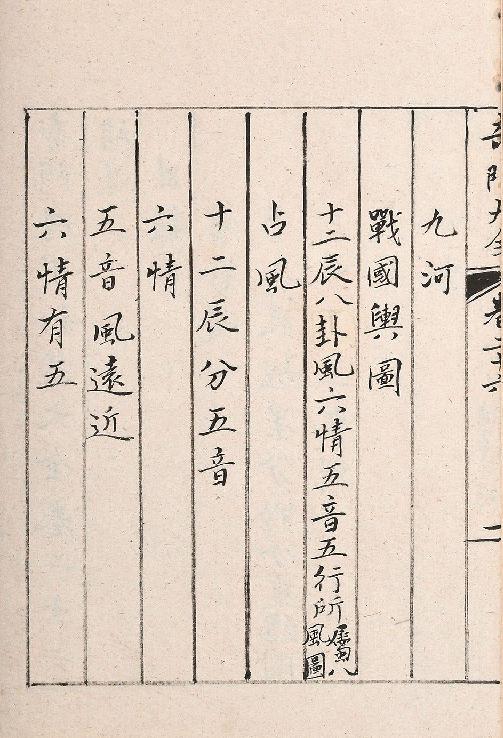 奇門大全 卷二十六 二
九河
戰國輿圖
十二辰八卦風六情五音五行所屬八風圖
占風
十二辰分五音
六情
五音風遠近
六情有五